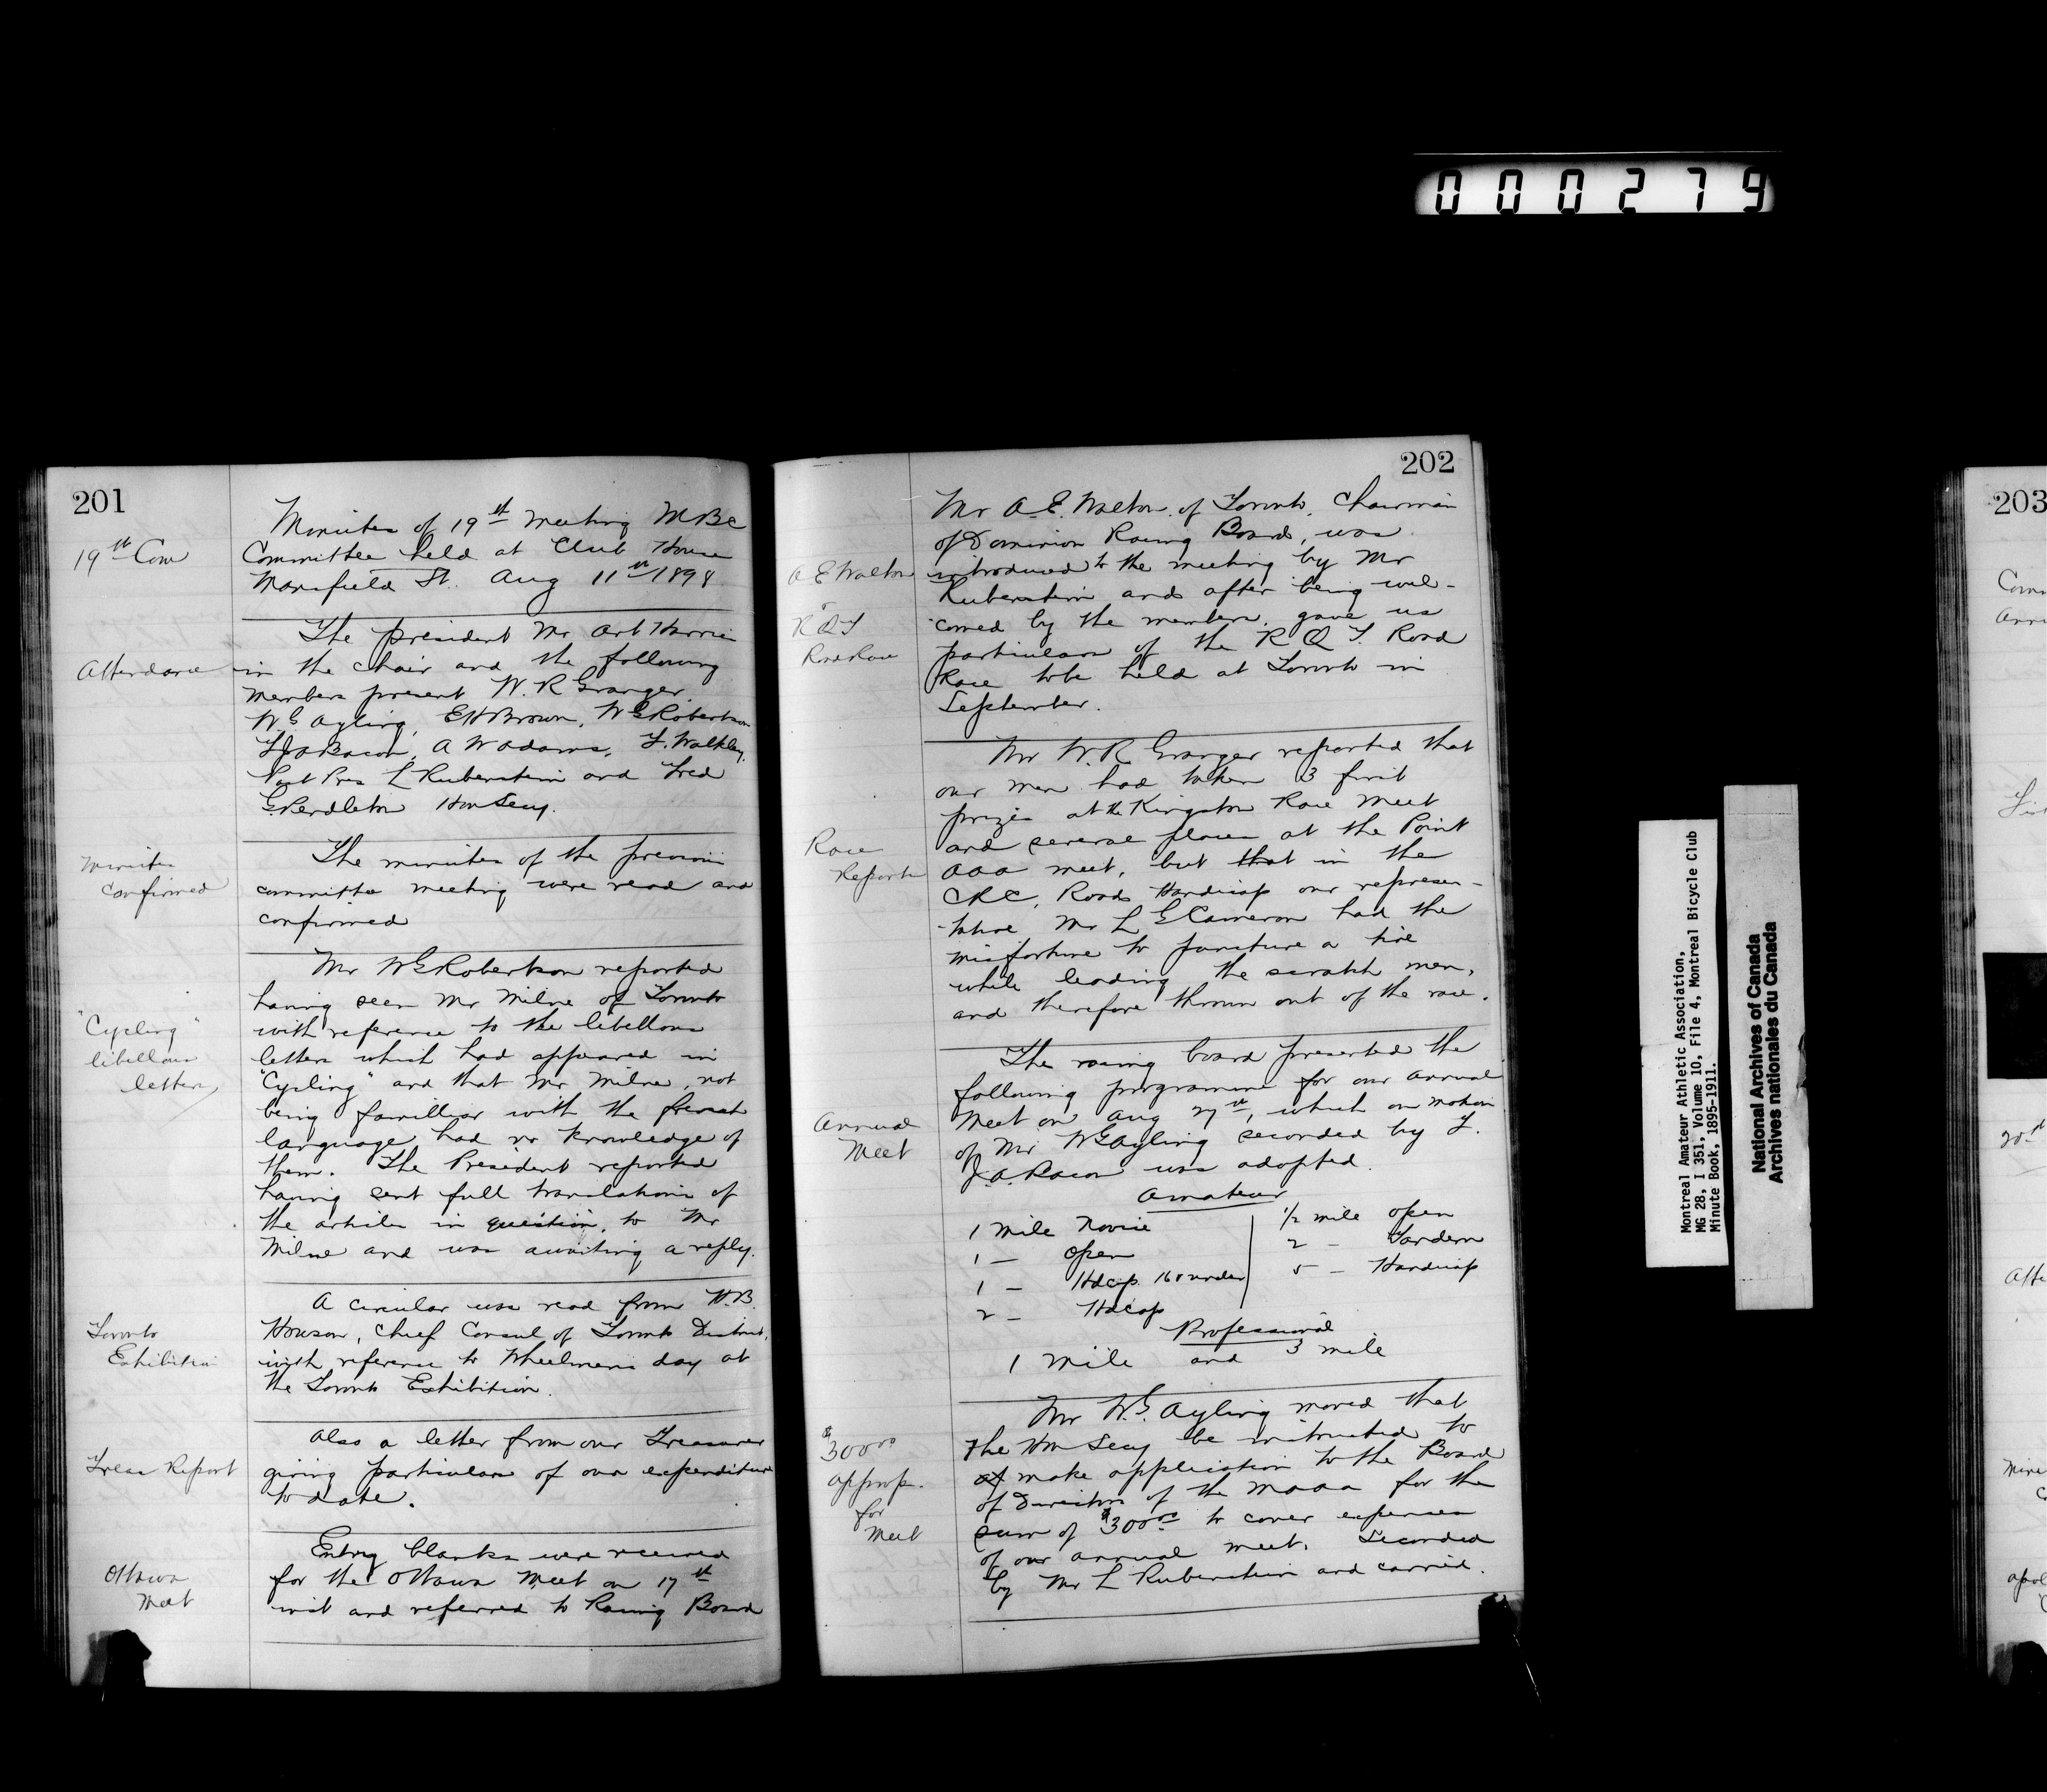 000279
201
19th Com
Minutes of 19th meeting MBC
Committee held at Club House
Mansfield St. Aug 11th 1898
Attendance
The president Mr Art Harris
in the chair and the following
members present W. R Granger
W. G Ayling, E H Brown, W G Robertson
F J A Bacon, A W Adams, F. Walkley,
Past Pres L Rubenstein and Fred
G Pendleton Hon Secy.
Minutes
confirmed
The minutes of the previous
committee meeting were read and
confirmed
"Cycling"
libellous
letters
Mr W G Robertson reported
having seen Mr Milne of Toronto
with reference to the libellous
letters which had appeared in
"Cycling" and that Mr Milne, not
being familliar with the french
language had no knowledge of
them. The President reported
having sent full translations of
the articles in question, to Mr
Milne and was awaiting a reply.
Toronto
Exhibition
A circular was read from H.B.
Howson, Chief Consul of Toronto District,
with reference to Wheelmens day at
the Toronto Exhibition.
Treas Report
Also a letter from our Treasurer
giving particulars of our expenditure
to date.
Ottawa
Meet
Entry blanks were received
for the Ottawa Meet on 17th
inst and referred to Racing Board
202
Mr A. E. Walton of Toronto, Chairman
of Dominion Racing Board, was
A E Walton
introduced to the meeting by Mr
Rubenstein and after being wel-
R Q T
Road Race
comed by the members, gave us
particulars of the R Q T. Road
Race to be held at Toronto in
September.
Race
Reports
Mr W. R. Granger reported that
our men had taken 3 first
prizes at the Kingston Race Meet
and several places at the Point
AAA meet, but that in the
CRC, Road Handicap our represen-
-tative Mr L G Cameron had the
misfortune to puncture a tire
while leading the scratch men,
and therefore thrown out of the race.
Annual
Meet
The racing board presented the
following programme for our annual
Meet on Aug 27th, which on motion
of Mr W G Ayling seconded by F.
J A. Bacon was adopted.
Amateur
1 Mile Novice
1 — Open
1 — Hdcap 160 under
2 — Hdcap
1/2 mile open
2 — Tandem
5 — Handicap
Professional
1 Mile and 3 mile
$300.00
approp.
for
Meet
Mr W. G. Ayling moved that
the Hon Secy be instructed to
make application to the Board
of Directors of the MAAA for the
sum of $300.00 to cover expenses
of our annual meet. Seconded
by Mr L Rubenstein and carried.
Montreal Amateur Athletic Association,
MG 28, I 351, Volume 10, File 4, Montreal Bicycle Club
Minute Book, 1895-1911.
National Archives of Canada
Archives nationales du Canada
203
20th